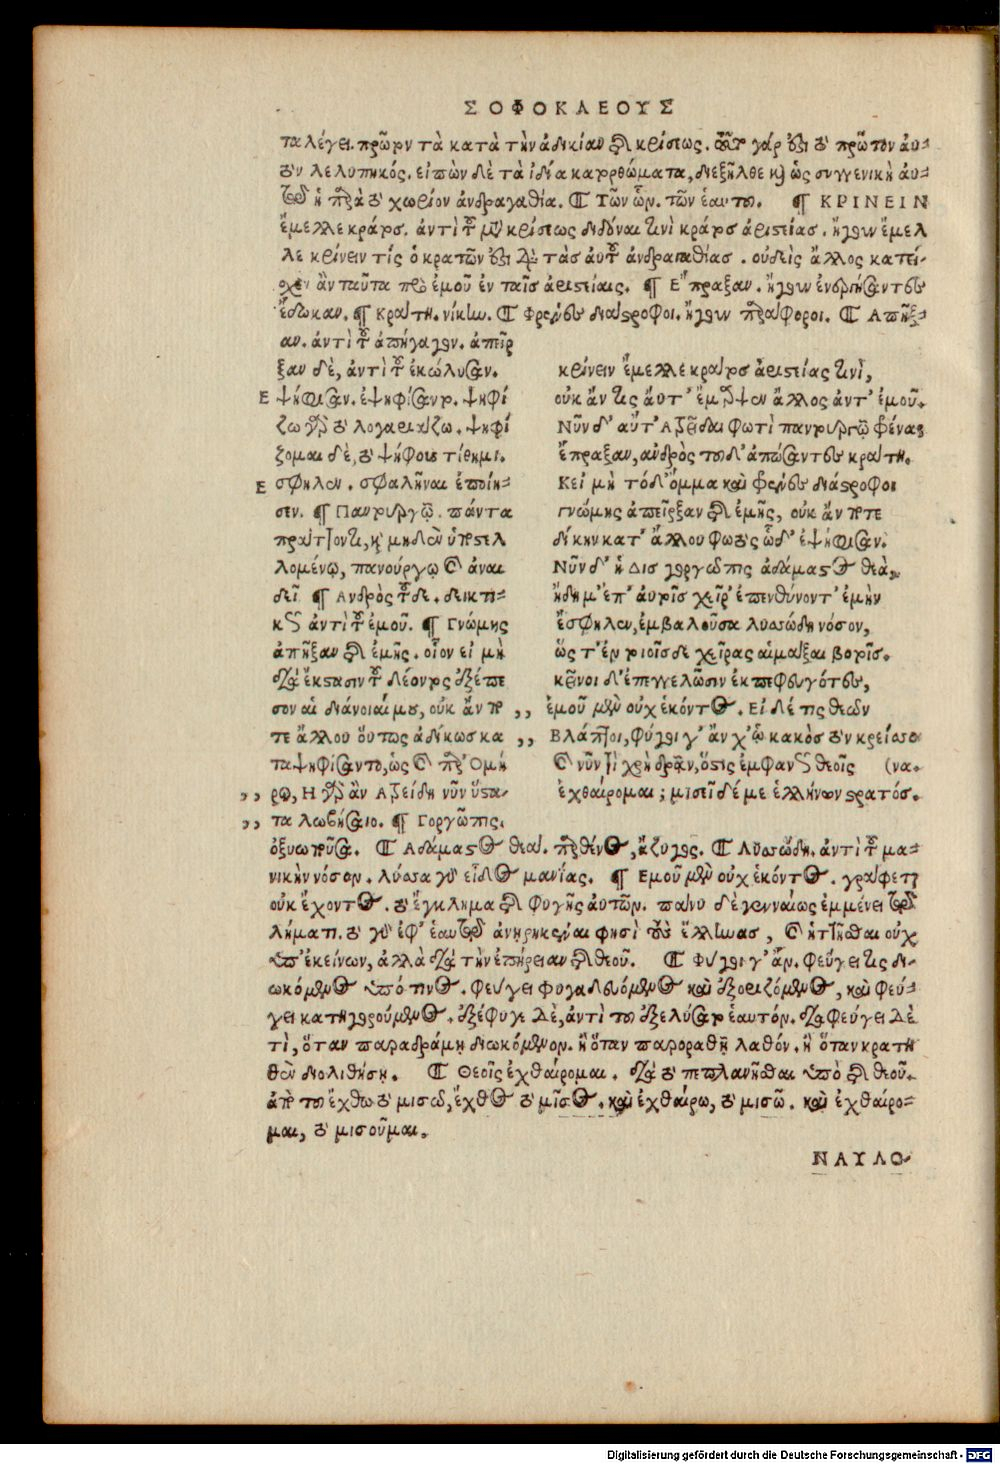 ΣΟΦΟΚΛΕΟΥΣ
τα λέγει. πρῶτον τὰ κατὰ τὴν ἀδικίαν τῆς κρίσεως. τοῦτο γάρ ἐστι τὸ πρῶτον αὐ-
τὸν λελυπηκός. εἰπὼν δὲ τὰ ἰδία κατορθώματα, διεξῆλθε καὶ ὡς συγγενικὴ αὐ-
τῷ ἡ περὶ τὸ χωρίον ἀνδραγαθία. ¶ Τῶν ὧν. τῶν ἑαυτοῦ. ¶ ΚΡΙΝΕΙΝ
ἔμελλε κράτος. ἀντὶ τοῦ μετὰ κρίσεως διδόναι τινὶ κράτος ἀριστείας. ἤγουν ἔμελ
λε κρίνειν τίς ὁ κρατῶν ἐστι διὰ τὰς αὑτοῦ ἀνδραγαθίας. οὐδεὶς ἄλλος κατεί-
χεν ἂν ταῦτα πρὸ ἐμοῦ ἐν ταῖς ἀριστείαις. ¶ Ἔπραξαν. ἤγουν ἐνεργήσαντες
ἔδωκαν. ¶ Κράτη. νίκην. ¶ Φρένες διάστροφοι. ἤγουν παράφοροι. ¶ Ἀπῆξ-
αν. ἀντὶ τοῦ ἀπήγαγον. ἀπεῖρ
ξαν δὲ, ἀντὶ τοῦ ἐκώλυσαν.
Εψήφισαν. ἐψηφίσαντο. ψηφί
ζω γὰρ τὸ λογαριάζω. ψηφί
ζομαι δὲ, τὸ ψήφους τίθημι.
Εσφηλεν. σφαλῆναι ἐποίη-
σεν. ¶ Παντουργῷ. πάντα
πράττοντι, καὶ μηδὲν ὑποστελ
λομένῳ, πανούργῳ καὶ ἀναι
δεῖ ¶ Ἀνδρὸς τοῦδε. δεικτι-
κῶς ἀντὶ τοῦ ἐμοῦ. ¶ Γνώμης
ἀπῆξαν τῆς ἐμῆς. οἷον εἰ μὴ
διὰ ἔκστασιν τοῦ δέοντος ἐξέπε
σον αἱ διάνοιαί μου, οὐκ ἄν πο
τε ἄλλου οὕτως ἀδίκως κα
ταψηφίσαντο, ὡς καὶ παρ' Ὁμή
,, ρῳ, Η γὰρ ἂν Ἀτρείδη νῦν ὕστα-
,, τα λωβήσαιο. ¶ Γοργῶπις.
κρίνειν ἔμελλε κράτος ἀριστείας τινὶ,
οὐκ ἄν τις αὔτ' ἔμαρψεν ἄλλος ἀντ' ἐμοῦ.
Νῦν δ' αὔτ' Ἀτρεῖδαι φωτὶ παντουργῷ φρένας
ἔπραξαν, ἀνδρὸς τοῦδ' ἀπώσαντες κράτη.
Κεἰ μὴ τόδ' ὄμμα καὶ φρένες διάστροφοι
γνώμης ἀπεῖρξαν τῆς ἐμῆς, οὐκ ἄν ποτε
δίκην κατ' ἄλλου φωτὸς ὧδ' ἐψήφισαν.
Νῦν δ' ἡ Διὸς γοργῶπις ἀδάμαστος θεὰ,
ἤδη μ' ἐπ' αὐτοῖς χεῖρ' ἐπενθύνοντ' ἐμὴν
ἔσφηλεν, ἐμβαλοῦσα λυσσώδη νόσον,
ὥς τ' ἐν τοιοῖσδε χεῖρας αἱμάξαι βοτοῖς.
κεῖνοι δ' ἐπεγγελῶσιν ἐκπεφευγότες,
,, ἐμοῦ μὲν οὐχ ἑκόντος. Εἰ δέ τις θεῶν
,, Βλάπτοι, φύγοι γ' ἂν χ' ὠ κακὸς τὸν κρείσσο
Καὶ νῦν τί χρὴ δρᾶν, ὅστις ἐμφανῶς θεοῖς (να.
ἐχθαίρομαι; μισεῖ δέ με ἑλλήνων στρατός.
ὀξυωποῦσα. ¶ Ἀδάμαστος θεά. παρθένος, ἄζυγος. ¶ Λυσσώδη. ἀντὶ τοῦ μα-
νικὴν νόσον. λύσσα γὰρ εἶδος μανίας. ¶ Ἐμοῦ μὲν οὐχ ἑκόντος. γράφεται
οὐκ ἔχοντος. τὸ ἔγκλημα τῆς φυγῆς αὐτῶν. πάνυ δὲ γενναίως ἐμμένει τῷ
λήματι. τὸ γὰρ ἐφ' ἑαυτῷ ἀνῃρηκέναι φησὶ τοὺς ἕλληνας, καὶ ἡττῆσθαι οὐχ
ὑπ' ἐκείνων, ἀλλὰ διὰ τὴν ἐπήρειαν τῆς θεοῦ. ¶ Φύγοι γ' ἄν. φεύγει τις δι-
ωκόμενος ὑπό τινος. φεύγει φυγαδευόμενος καὶ ἐξοριζόμενος, καὶ φεύ-
γει κατηγορούμενος. ἐξέφυγε δὲ, ἀντὶ τοῦ ἐξελύσατο ἑαυτόν. διαφεύγει δὲ
τὶ, ὅταν παραδράμῃ διωκόμενον. ἢ ὅταν παροραθῇ λαθόν. ἢ ὅταν κρατη
θὲν διολιθήσῃ. ¶ Θεοῖς ἐχθαίρομαι. διὰ τὸ πεπλανῆσθαι ὑπὸ τῆς θεοῦ.
ἀπὸ τοῦ ἔχθω τὸ μισῶ, ἔχθος τὸ μῖσος. καὶ ἐχθαίρω, τὸ μισῶ. καὶ ἐχθαίρο-
μαι, τὸ μισοῦμαι.
ΝΑΥΛΟ-
Digitalisierung gefördert durch die Deutsche Forschungsgemeinschaft - DFG